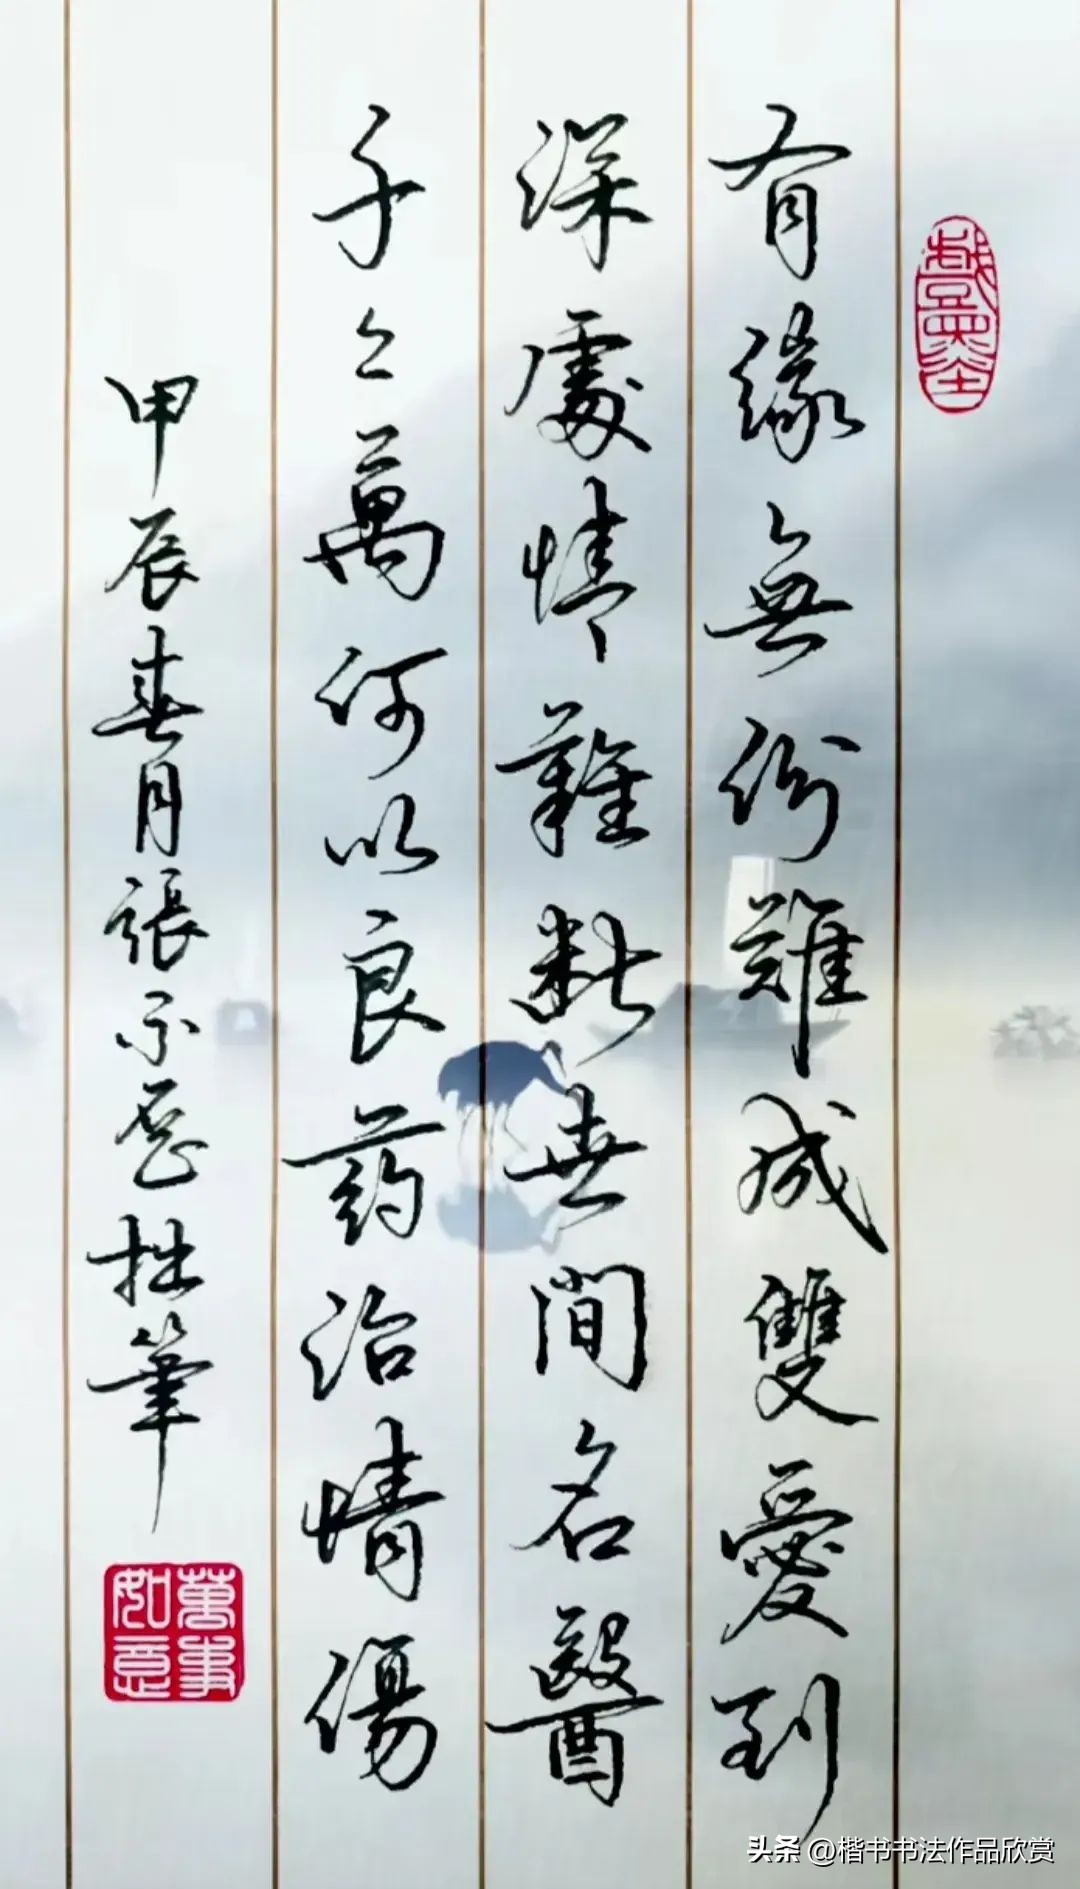 有緣無份難成雙愛到
深處情難斷世間名醫
千々萬何以良药治情傷
甲辰春月張拙筆
萬事如意
头条 @楷书书法作品欣赏